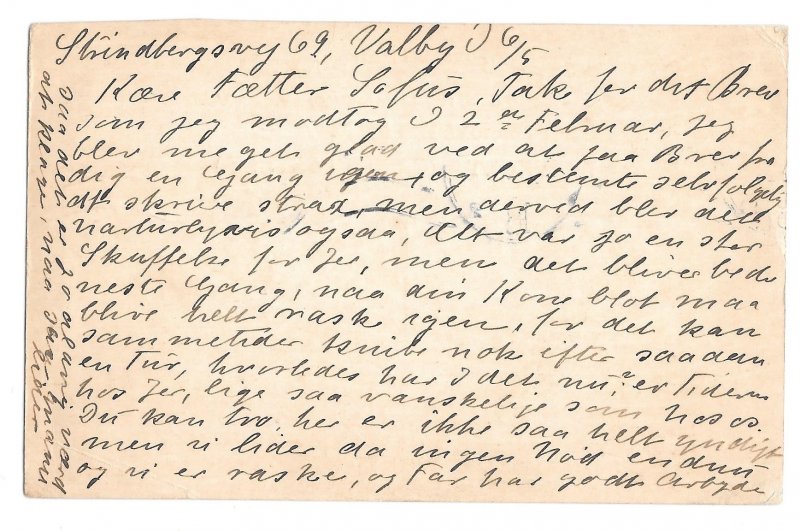 Strindbergsvej 69, Valby d 6/5
Kære Fætter Sofus, Tak for dit Brev
som jeg modtog d 2den Februar, jeg
blev meget glad ved at faa Brev fra
dig en Gang igen, og bestemte selvfølgelig
at skrive strax, men derved blev det
naturligvis ogsaa, det var jo en stor
Skuffelse for Jer, men det bliver bedre
neste Gang, naa din Kone blot maa
blive helt rask igen, for det kan
sammetider knibe nok efter saadan
en Tur, hvorledes har I det nu? er Tiderne
hos Jer, lige saa vanskelige som hos os.
Du kan tro, her er ikke saa helt yndigt
men vi lider da ingen Nød endnu
og vi er raske, og Far har godt Arbejde
saa det er jo alting værd
at pleje, naa Jer
lider